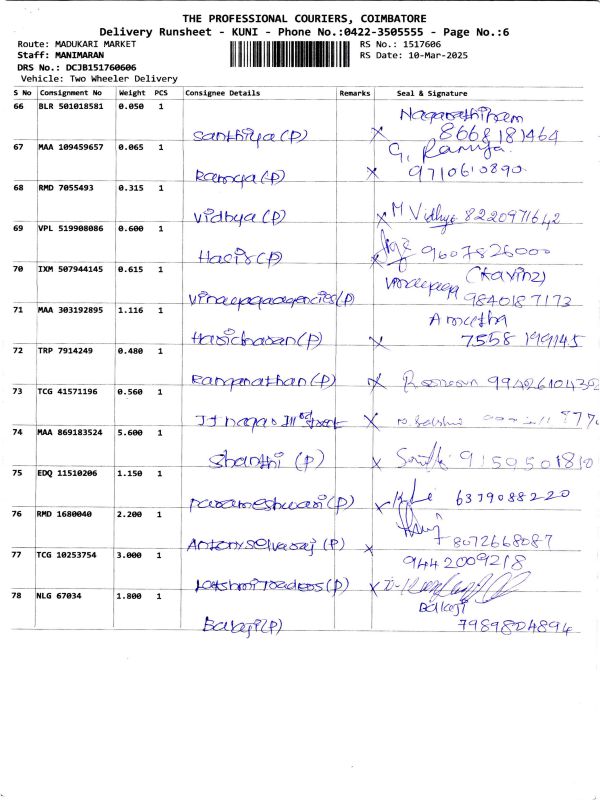 THE PROFESSIONAL COURIERS, COIMBATORE
Delivery Runsheet - KUNI - Phone No.:0422-3505555 - Page No.:6
Route: MADUKARI MARKET RS No.: 1517606
Staff: MANIMARAN RS Date: 10-Mar-2025
DRS No.: DCJB151760606
Vehicle: Two Wheeler Delivery
S No Consignment No Weight PCS Consignee Details Remarks Seal & Signature
66 BLR 501018581 0.050 1
Santhiya (P) X 8668181464
67 MAA 109459657 0.065 1 G. Ramya
Ramya (P) X 9710610890
68 RMD 7055493 0.315 1
Vidhya (P) X M. Vidhya 8220971642
69 VPL 519908086 0.600 1
Haris (P) X 9607826000
70 IXM 507944145 0.615 1
Vinayagaagencies (P) 9840187173
71 MAA 303192895 1.116 1
Haricharan (P) X 7558 199145
72 TRP 7914249 0.480 1
Ranganathan (P) X 9942610439
73 TCG 41571196 0.560 1
X
74 MAA 869183524 5.600 1
Shanthi (P) X 9150501810
75 EDQ 11510206 1.150 1
Parameshwari (P) X 6379088220
76 RMD 1680040 2.200 1
Antonyselvaraj (P) X 8072668087
77 TCG 10253754 3.000 1 9442009218
Lakshmi Traders (P) X
78 NLG 67034 1.800 1 Balaji
Balaji (P) 7989824894